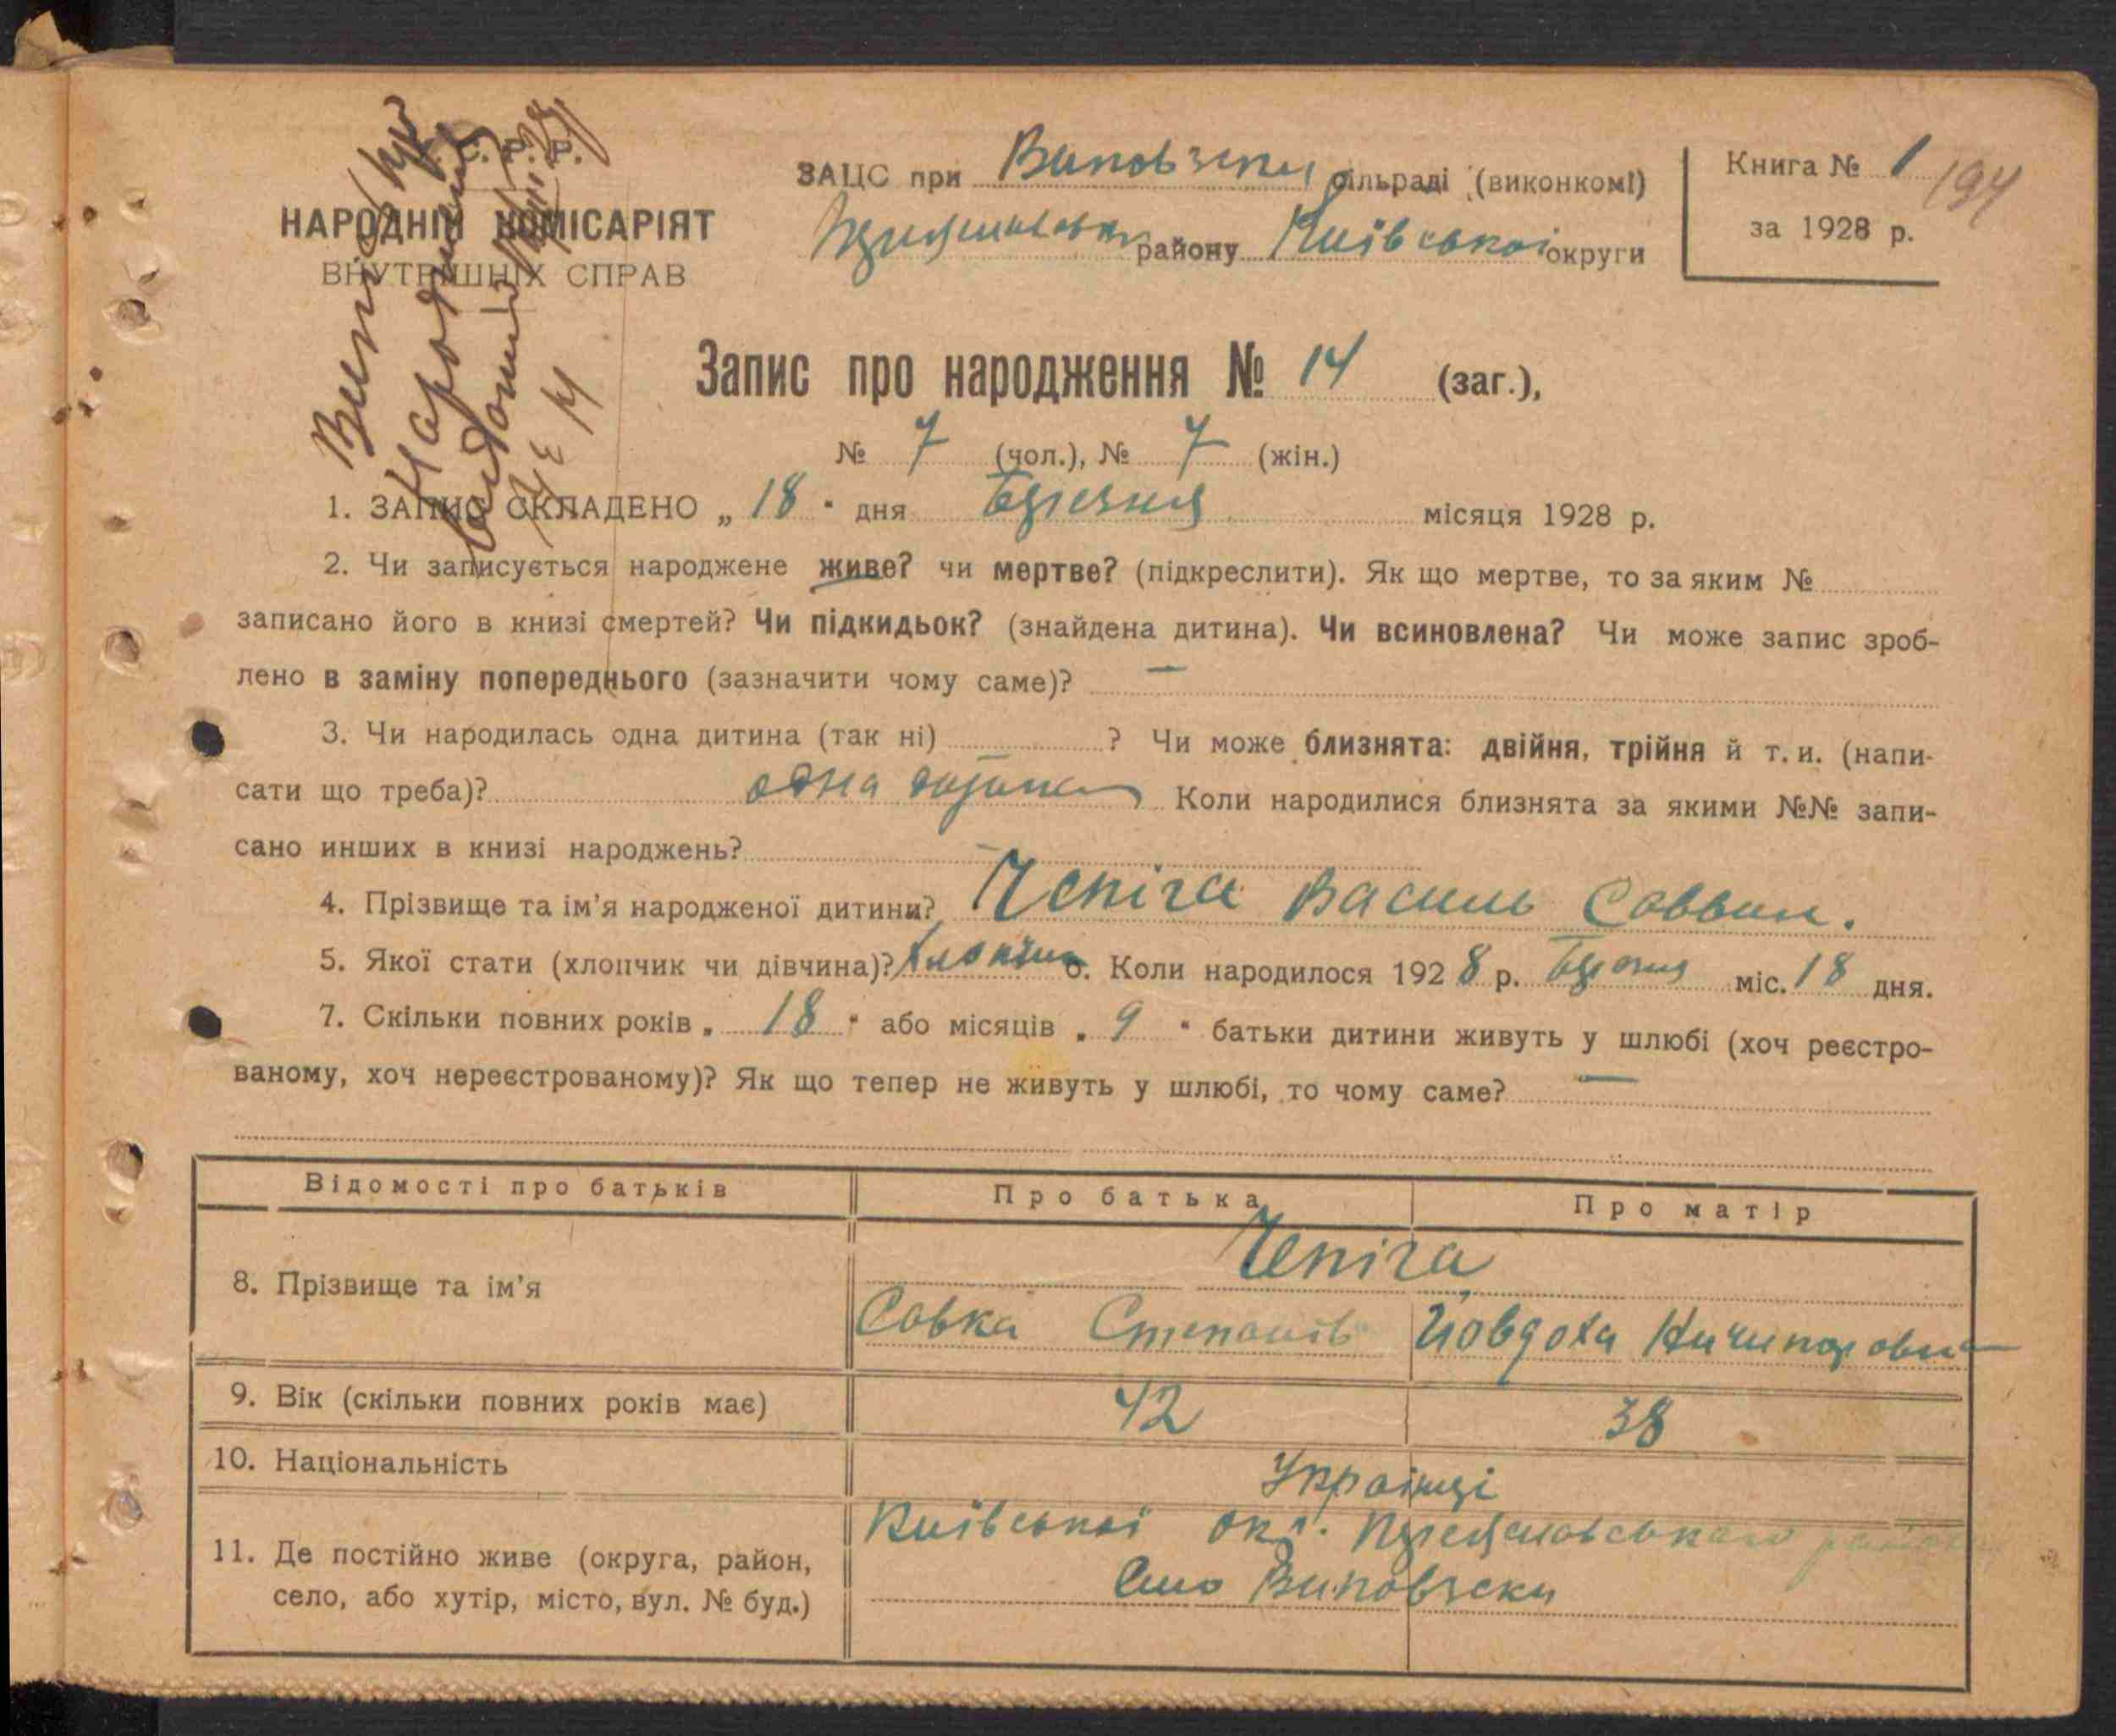 ЗАЦС при Виповзски сільраді (виконкомі)
району Київської округи
Книга № 1
194
за 1928 р.
НАРОДНІЙ КОМІСАРІЯТ
ВНУТРІШНІХ СПРАВ
Запис про народження № 14 (заг.),
№ 7 (чол.), № 7 (жін.)
1. ЗАПИС СКЛАДЕНО „ 18 " дня Березня місяця 1928 р.
2. Чи записується народжене живе? чи мертве? (підкреслити). Як що мертве, то за яким №
записано його в книзі смертей? Чи підкидьок? (знайдена дитина). Чи всиновлена? Чи може запис зроб-
лено в заміну попереднього (зазначити чому саме)? —
3. Чи народилась одна дитина (так ні) ? Чи може близнята: двійня, трійня й т. и. (напи-
сати що треба)? одна дитина Коли народилися близнята за якими №№ запи-
сано инших в книзі народжень? —
4. Прізвище та ім'я народженої дитини? Чепіга Василь Саввин.
5. Якої стати (хлопчик чи дівчина)? 6. Коли народилося 1928 р. Березня міс. 18 дня.
7. Скільки повних років „ 18 " або місяців „ 9 " батьки дитини живуть у шлюбі (хоч реєстро-
ваному, хоч нереєстрованому)? Як що тепер не живуть у шлюбі, то чому саме? —
Відомості про батьків Про батька Про матір
8. Прізвище та ім'я Чепіга
Савка Степанів Йовдоха Ничипоровна
9. Вік (скільки повних років має) 42 38
10. Національність Українці
11. Де постійно живе (округа, район, Київської окр. Переяславського району
село, або хутір, місто, вул. № буд.) Село Виповзски